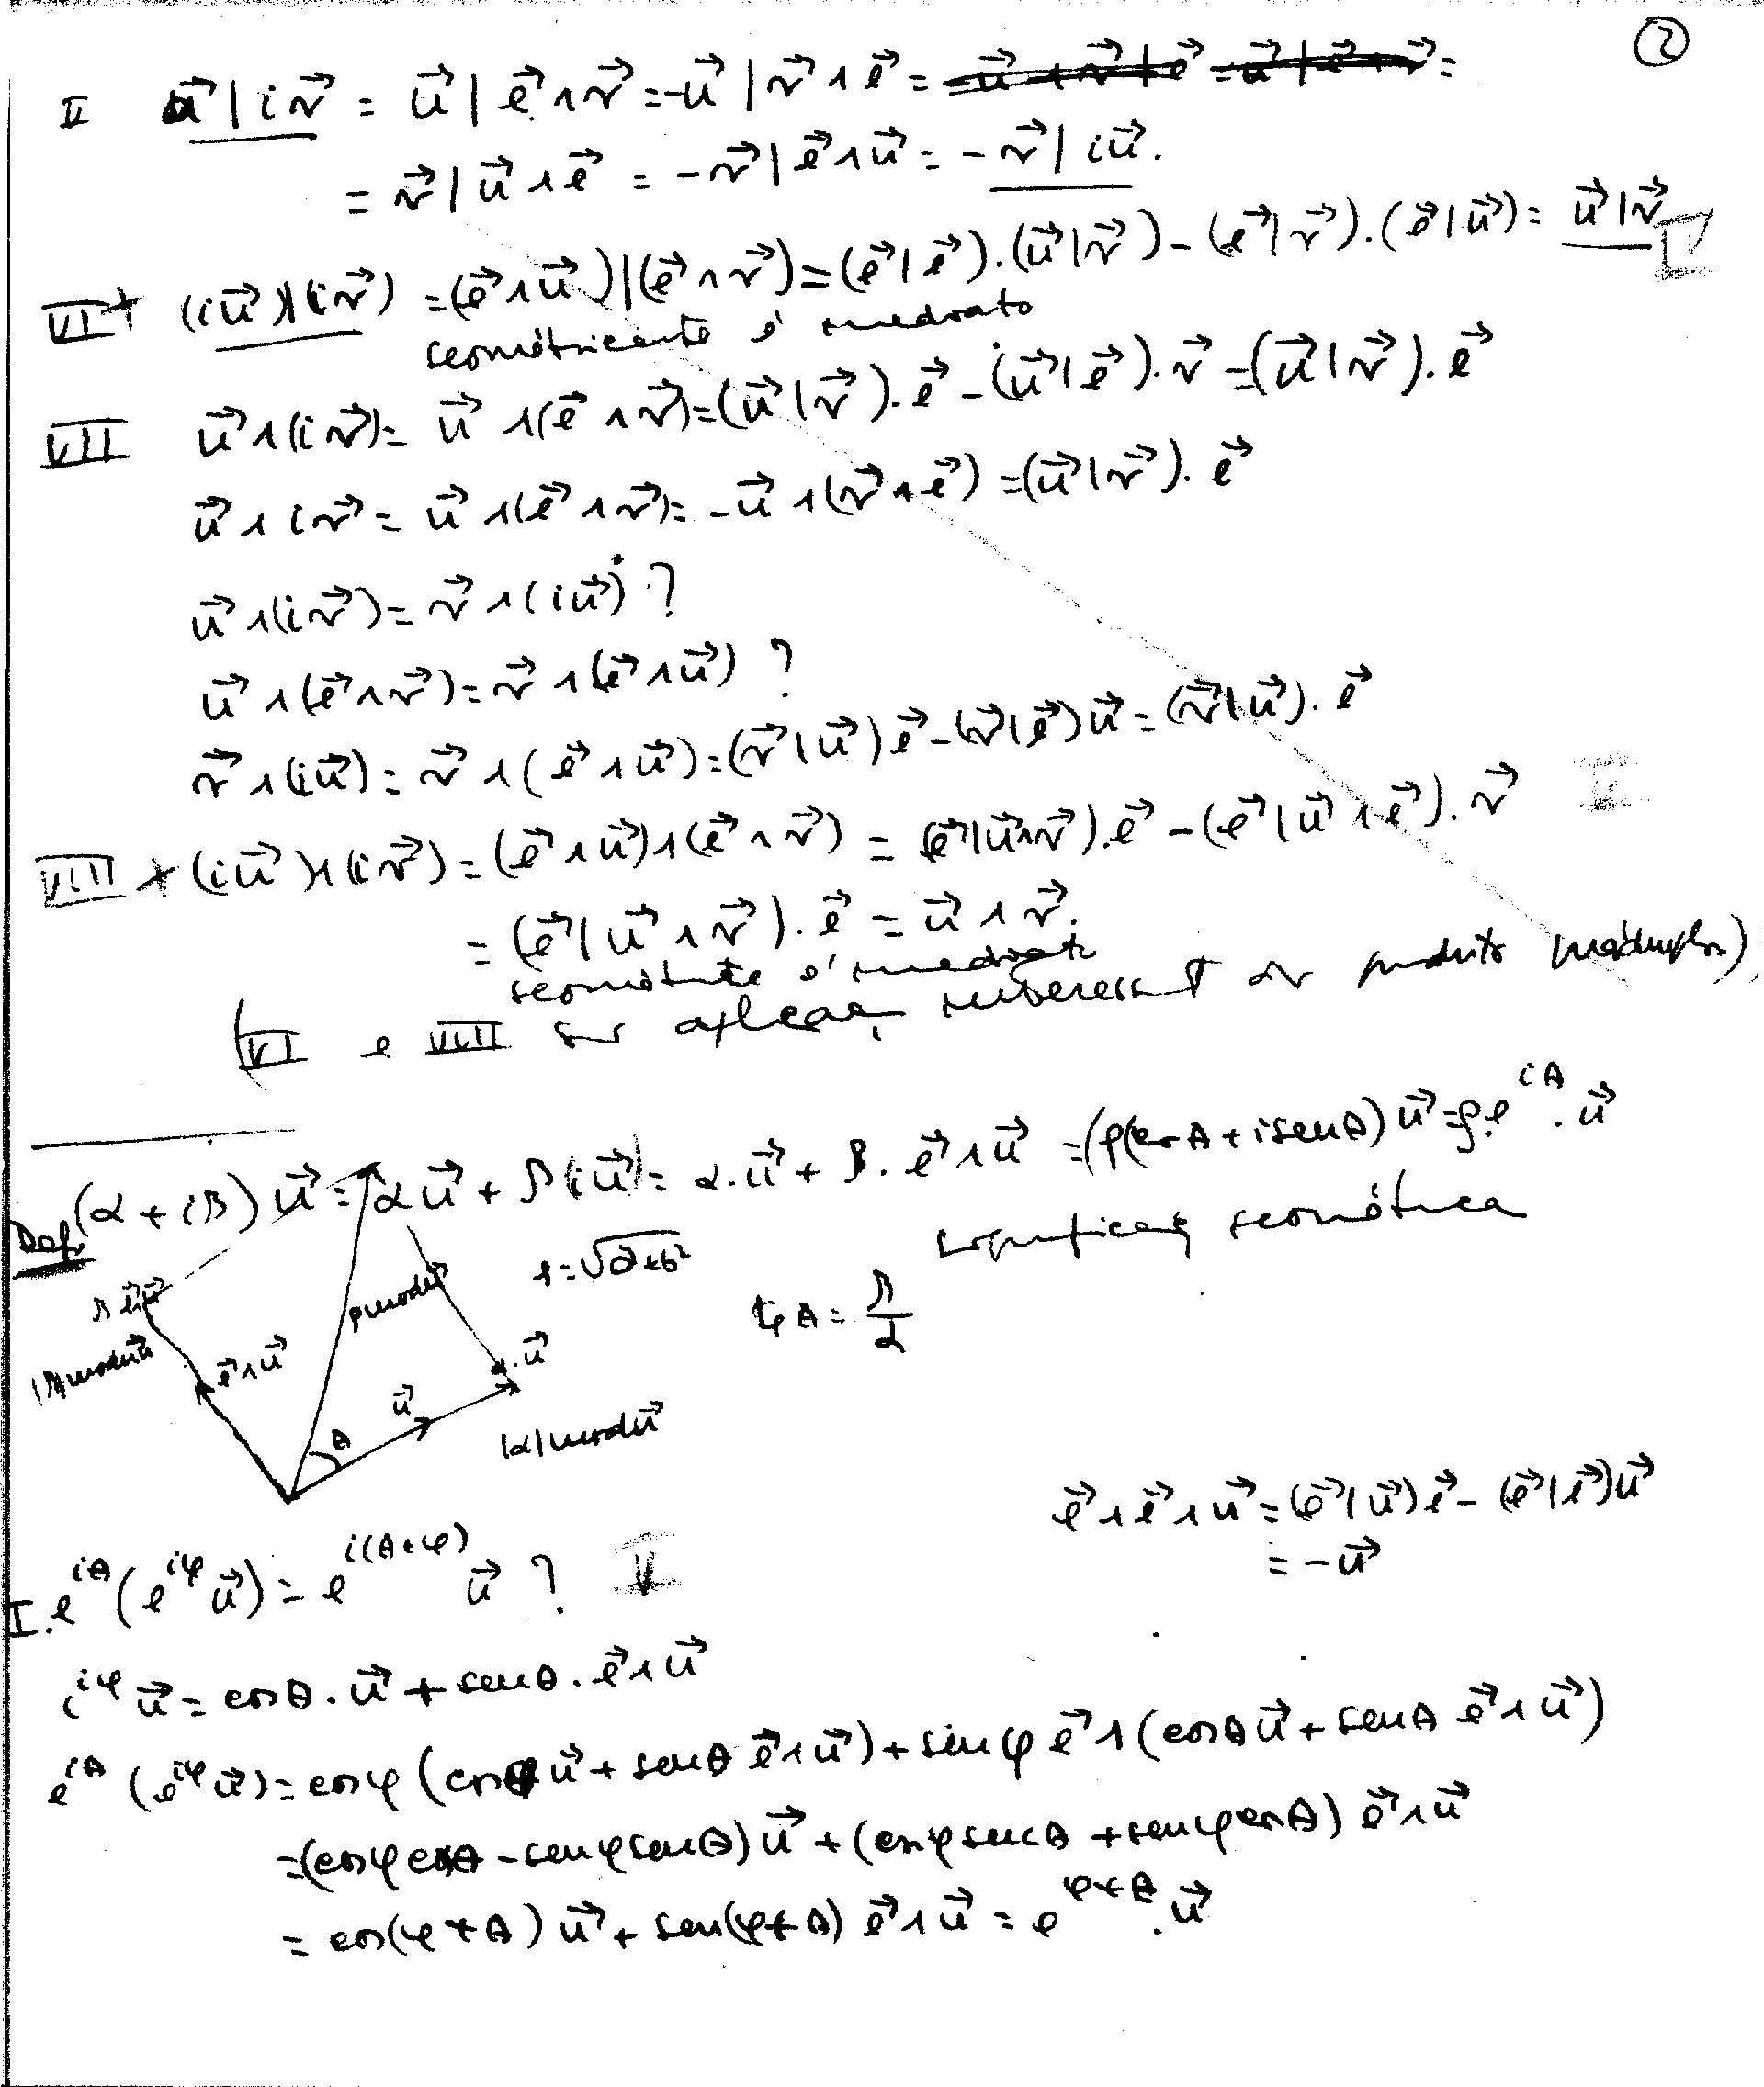 ②
V u⃗ | i v⃗ = u⃗ | e⃗ ∧ v⃗ = -u⃗ | v⃗ ∧ e⃗ =
= v⃗ | u⃗ ∧ e⃗ = -v⃗ | e⃗ ∧ u⃗ = -v⃗ | i u⃗.
VI + (i u⃗) | (i v⃗) = (e⃗ ∧ u⃗) | (e⃗ ∧ v⃗) = (e⃗ | e⃗).(u⃗ | v⃗) - (e⃗ | v⃗).(e⃗ | u⃗) = u⃗ | v⃗
geométricamente é imediato
VII u⃗ ∧ (i v⃗) = u⃗ ∧ (e⃗ ∧ v⃗) = (u⃗ | v⃗). e⃗ - (u⃗ | e⃗). v⃗ = (u⃗ | v⃗). e⃗
u⃗ ∧ i v⃗ = u⃗ ∧ (e⃗ ∧ v⃗) = -u⃗ ∧ (v⃗ ∧ e⃗) = (u⃗ | v⃗). e⃗
u⃗ ∧ (i v⃗) = v⃗ ∧ (i u⃗) ?
u⃗ ∧ (e⃗ ∧ v⃗) = v⃗ ∧ (e⃗ ∧ u⃗) ?
v⃗ ∧ (i u⃗) = v⃗ ∧ (e⃗ ∧ u⃗) = (v⃗ | u⃗) e⃗ - (v⃗ | e⃗) u⃗ = (v⃗ | u⃗). e⃗
VIII + (i u⃗) ∧ (i v⃗) = (e⃗ ∧ u⃗) ∧ (e⃗ ∧ v⃗) = (e⃗ | u⃗ ∧ v⃗). e⃗ - (e⃗ | u⃗ ∧ e⃗). v⃗
= (e⃗ | u⃗ ∧ v⃗). e⃗ = u⃗ ∧ v⃗.
é imediato
(VI e VIII são produto
Def. (α + iβ) u⃗ = α u⃗ + β (i u⃗) = α. u⃗ + β. e⃗ ∧ u⃗ = (ρ(cos θ + i sen θ) u⃗ = ρ. e^{iθ}. u⃗
significação geométrica
tg θ = β/α
β e⃗ ∧ u⃗
|β| mod u⃗
e⃗ ∧ u⃗
ρ mod u⃗
θ
u⃗
α. u⃗
|α| mod u⃗
e⃗ ∧ e⃗ ∧ u⃗ = (e⃗ | u⃗) e⃗ - (e⃗ | e⃗) u⃗
= -u⃗
I. e^{iθ} (e^{iφ} u⃗) = e^{i(θ+φ)} u⃗ ?
i^{iφ} u⃗ = cos θ. u⃗ + sen θ. e⃗ ∧ u⃗
e^{iθ} (e^{iφ} u⃗) = cos φ (cos θ u⃗ + sen θ e⃗ ∧ u⃗) + sen φ e⃗ ∧ (cos θ u⃗ + sen θ e⃗ ∧ u⃗)
= (cos φ cos θ - sen φ sen θ) u⃗ + (cos φ sen θ + sen φ cos θ) e⃗ ∧ u⃗
= cos(φ + θ) u⃗ + sen(φ + θ) e⃗ ∧ u⃗ = e^{φ+θ}. u⃗